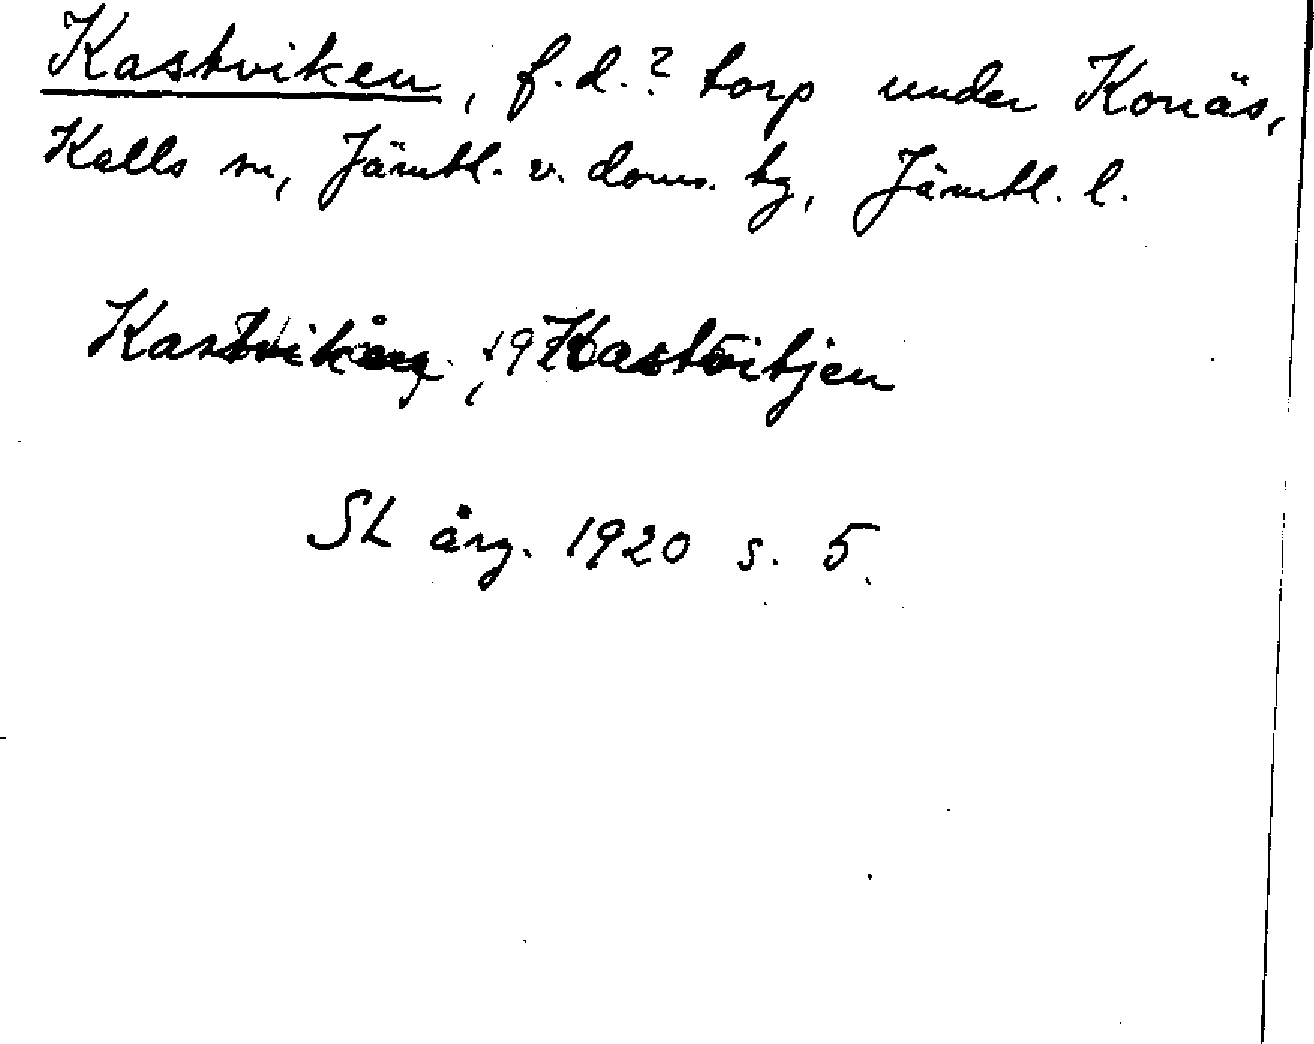 Kastviken, f.d.? torp under Konäs,
Kalls sn, Jämtl. v. doms. tg, Jämtl. l.
Kastvikjen
SL årg. 1920 s. 5.